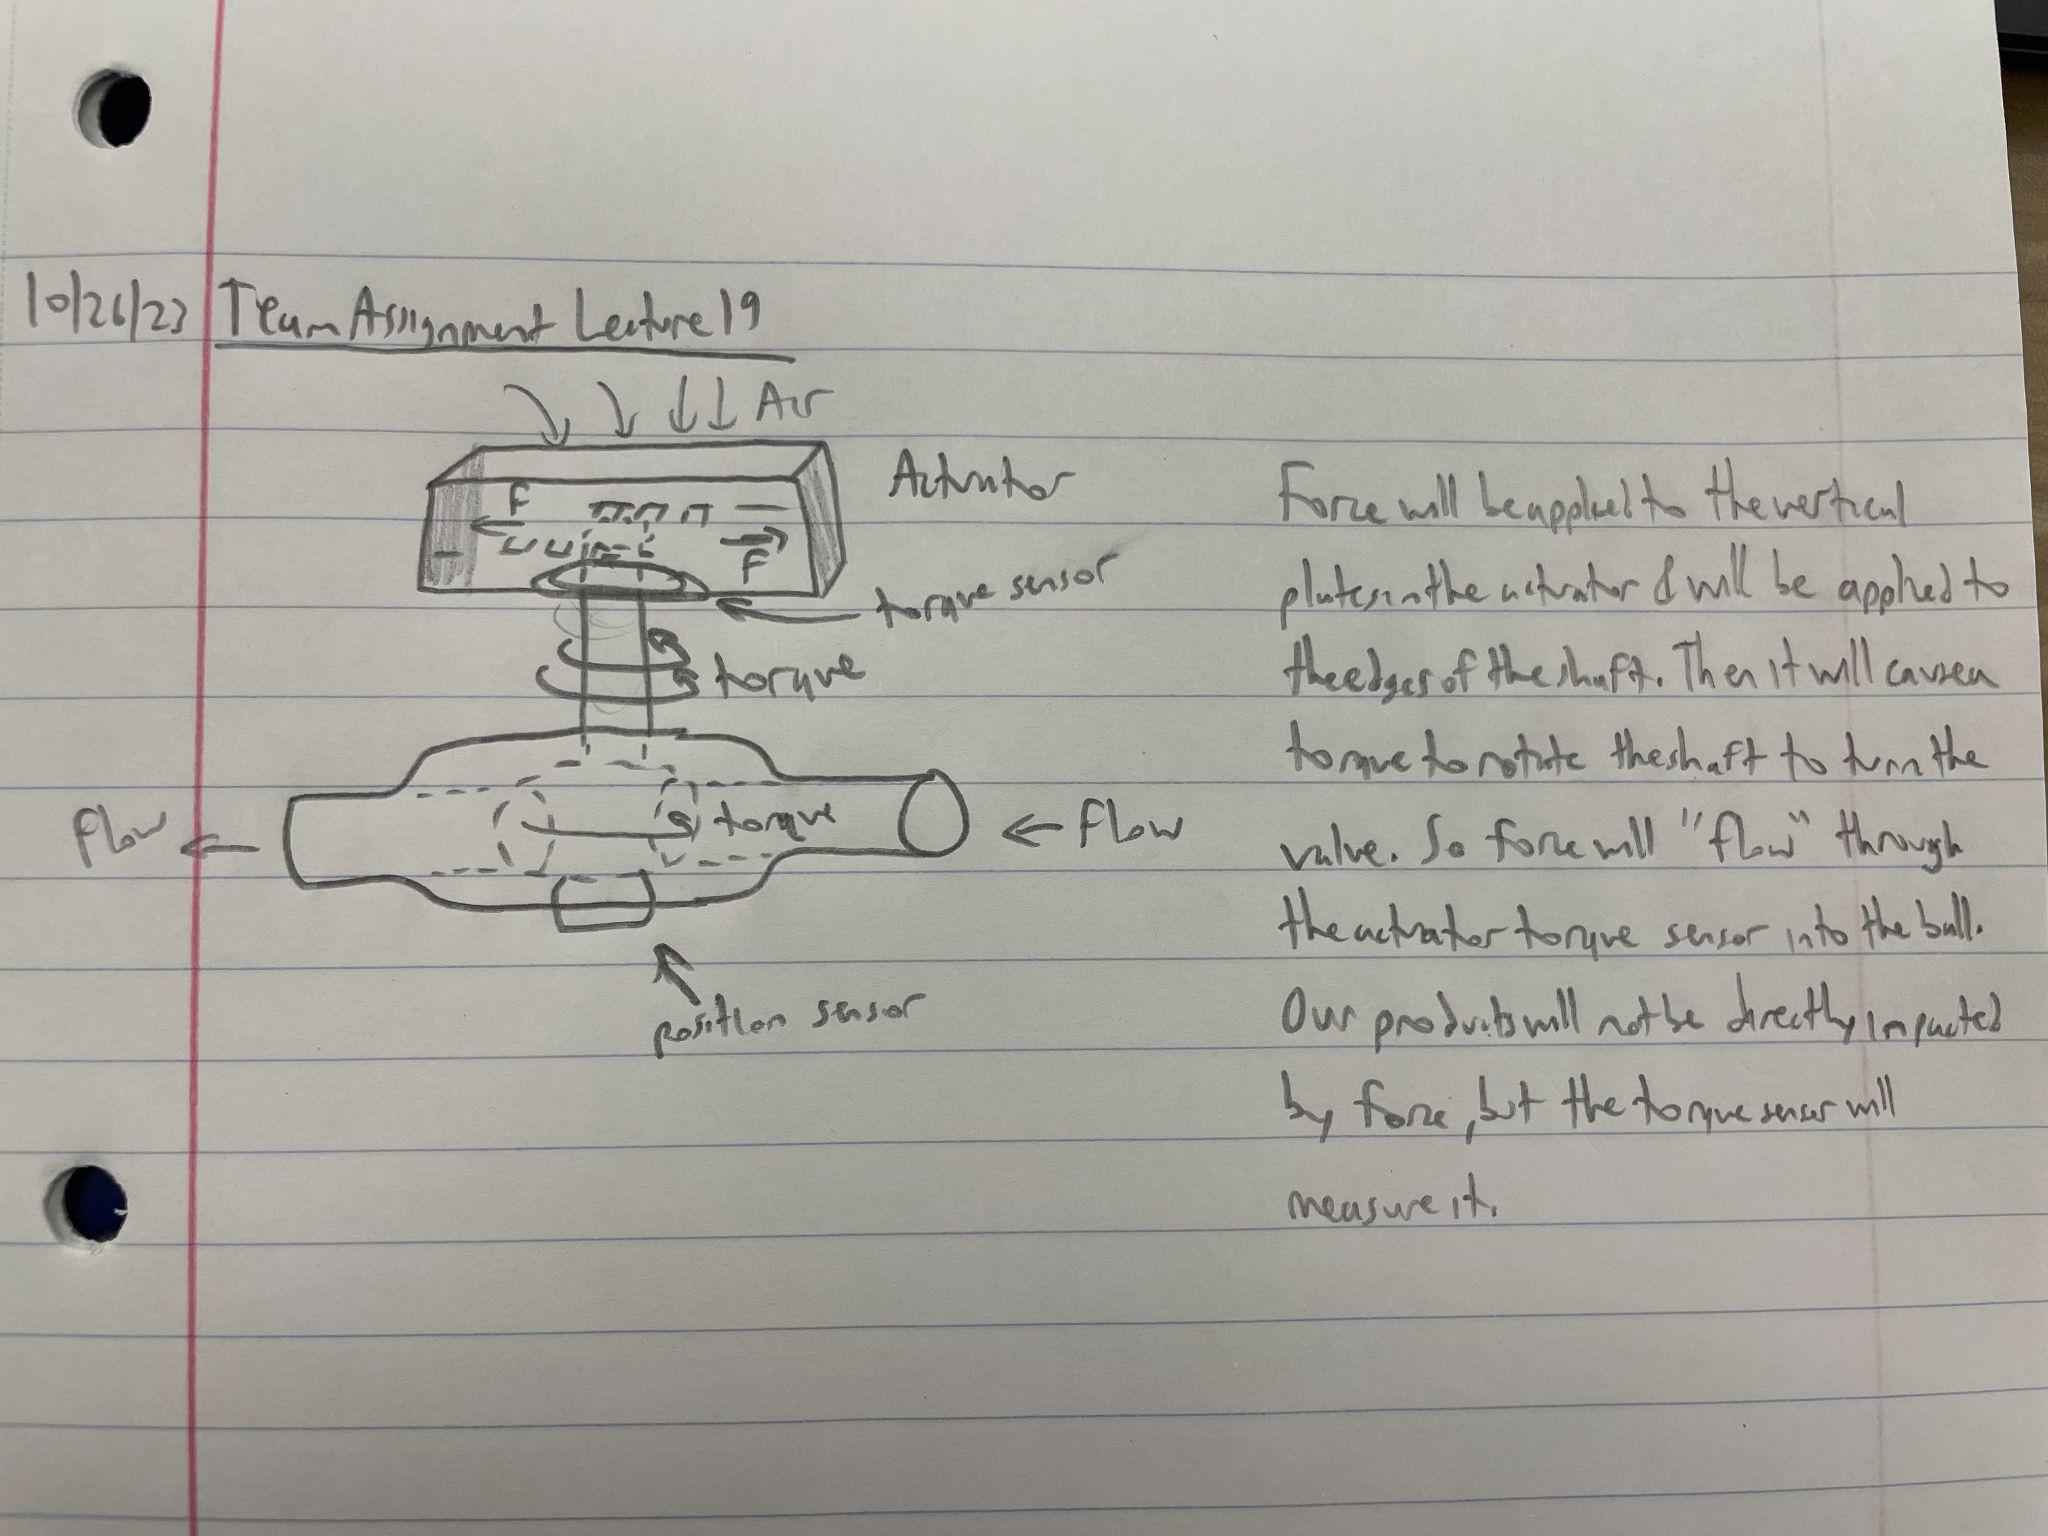 10/26/23 Team Assignment Lecture 19
Air
Actuator
F
F
torque sensor
torque
torque
Flow
Flow
position sensor
Force will be applied to the vertical
plates in the actuator & will be applied to
the edges of the shaft. Then it will cause a
torque to rotate the shaft to turn the
valve. So force will "flow" through
the actuator torque sensor into the ball.
Our products will not be directly impacted
by force, but the torque sensor will
measure it.